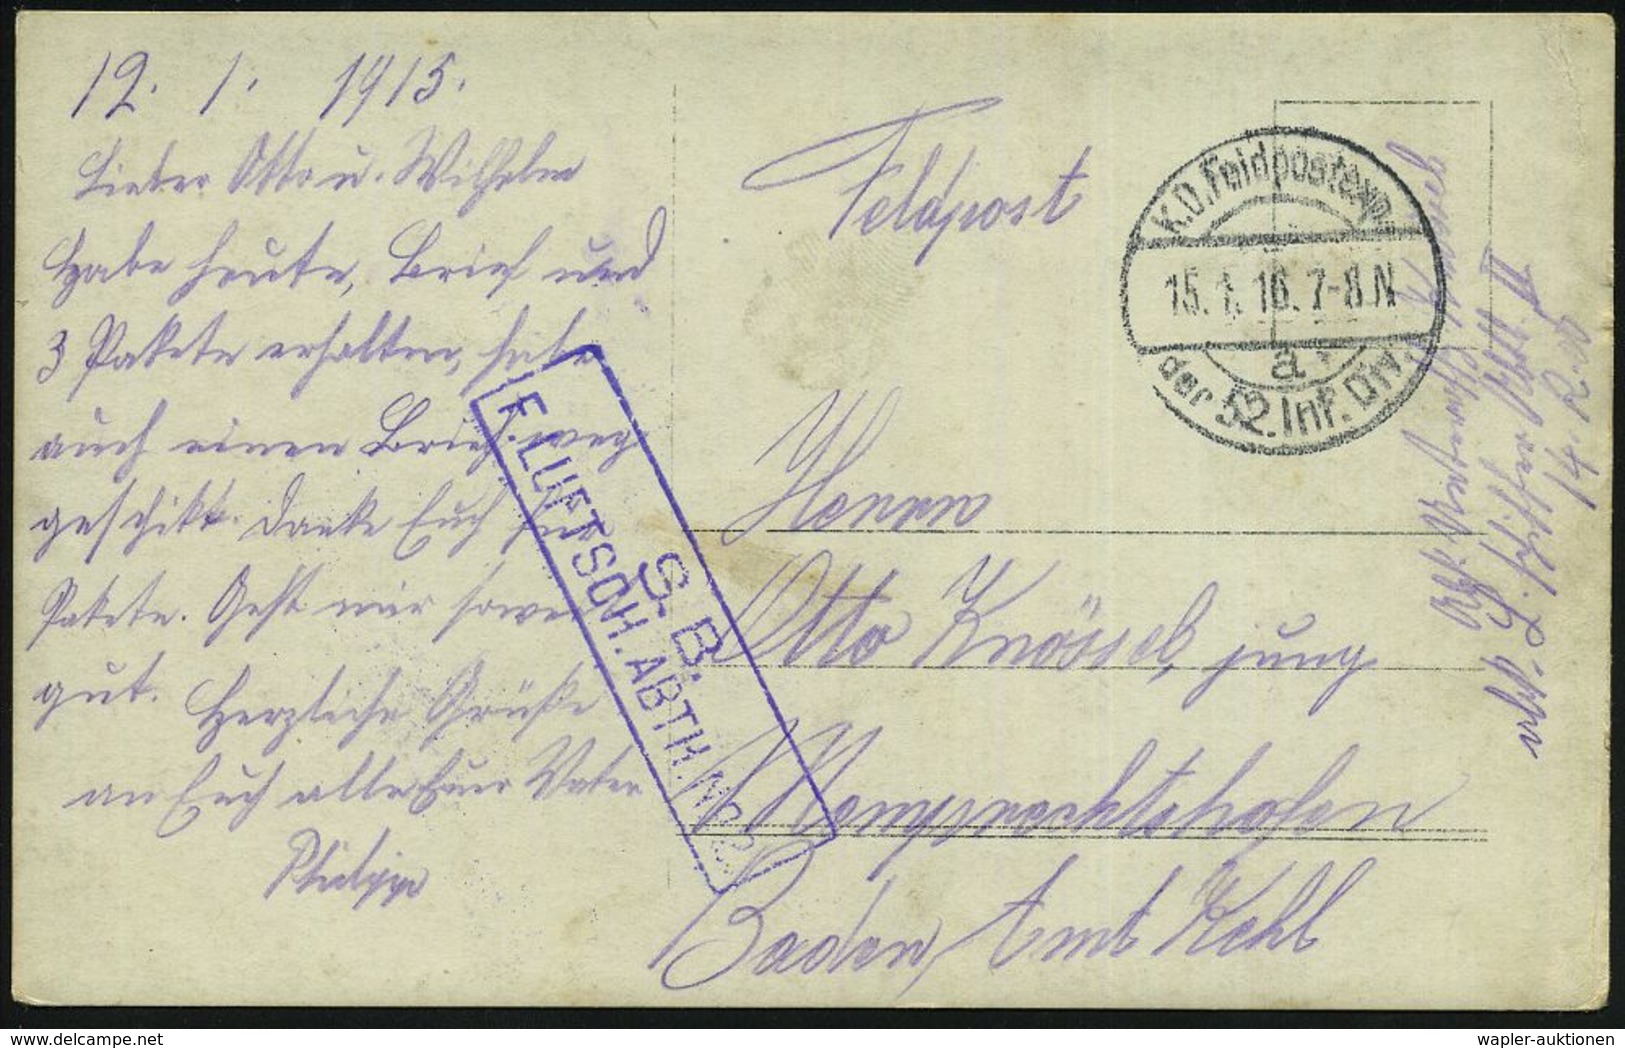 12. 1. 1915.
Lieber Otto u. Wilhelm
Habe heute, Brief und
3 Pakete erhalten, habe
auch einen Brief weg
geschikt. Danke Euch für
Pakete. Geht mir soweit
gut. Herzliche Grüße
an Euch alle Euer Vater
Philipp
Feldpost
K.D. Feldpostexp.
15. 1. 16. 7-8 N
a
der 52. Inf. Div.
S. B.
F. LUFTSCH. ABTH. No 2.
Herrn
Otto Knössel, jung
Memprechtshofen
Baden, Amt Kehl